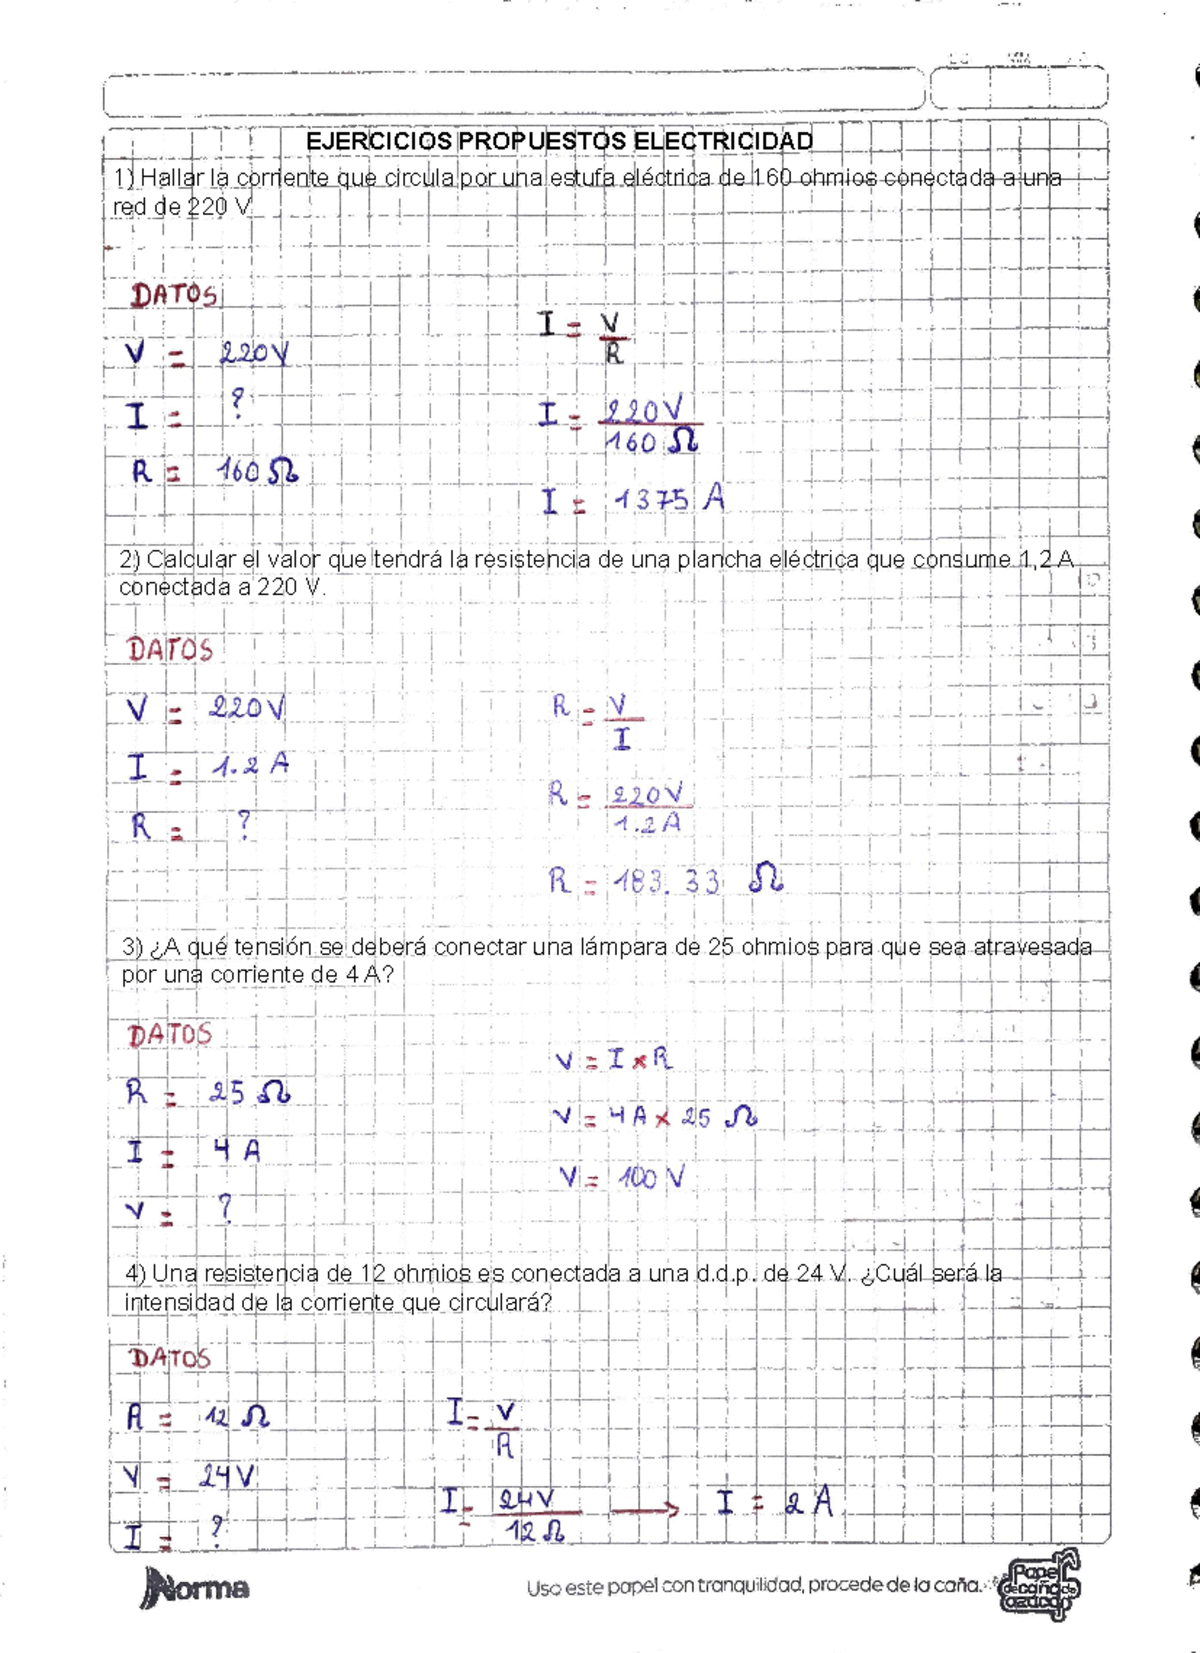 EJERCICIOS PROPUESTOS ELECTRICIDAD
1) Hallar la corriente que circula por una estufa eléctrica de 160 ohmios conectada a una
red de 220 V
DATOS
V = 220V
I = ?
R = 160 Ω
I = V
R
I = 220V
160 Ω
I = 1375 A
2) Calcular el valor que tendrá la resistencia de una plancha eléctrica que consume 1,2 A
conectada a 220 V.
DATOS
V = 220V
I = 1.2 A
R = ?
R = V
I
R = 220V
1.2 A
R = 183.33 Ω
3) ¿A qué tensión se deberá conectar una lámpara de 25 ohmios para que sea atravesada
por una corriente de 4 A?
DATOS
R = 25 Ω
I = 4 A
V = ?
V = I x R
V = 4A x 25 Ω
V = 100 V
4) Una resistencia de 12 ohmios es conectada a una d.d.p. de 24 V. ¿Cuál será la
intensidad de la corriente que circulará?
DATOS
R = 12 Ω
V = 24V
I = ?
I = V
R
I = 24V
12 Ω
→ I = 2 A
Norma
Uso este papel con tranquilidad, procede de la caña.
Papel
de caña de
azúcar